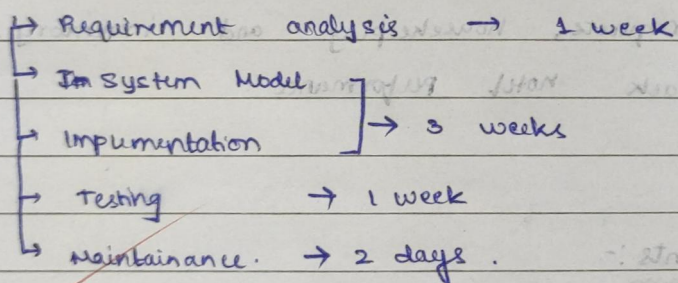 → Requirement analysis → 1 week
→ System Model
→ Implementation ] → 3 weeks
→ Testing → 1 week
→ Maintainance. → 2 days.